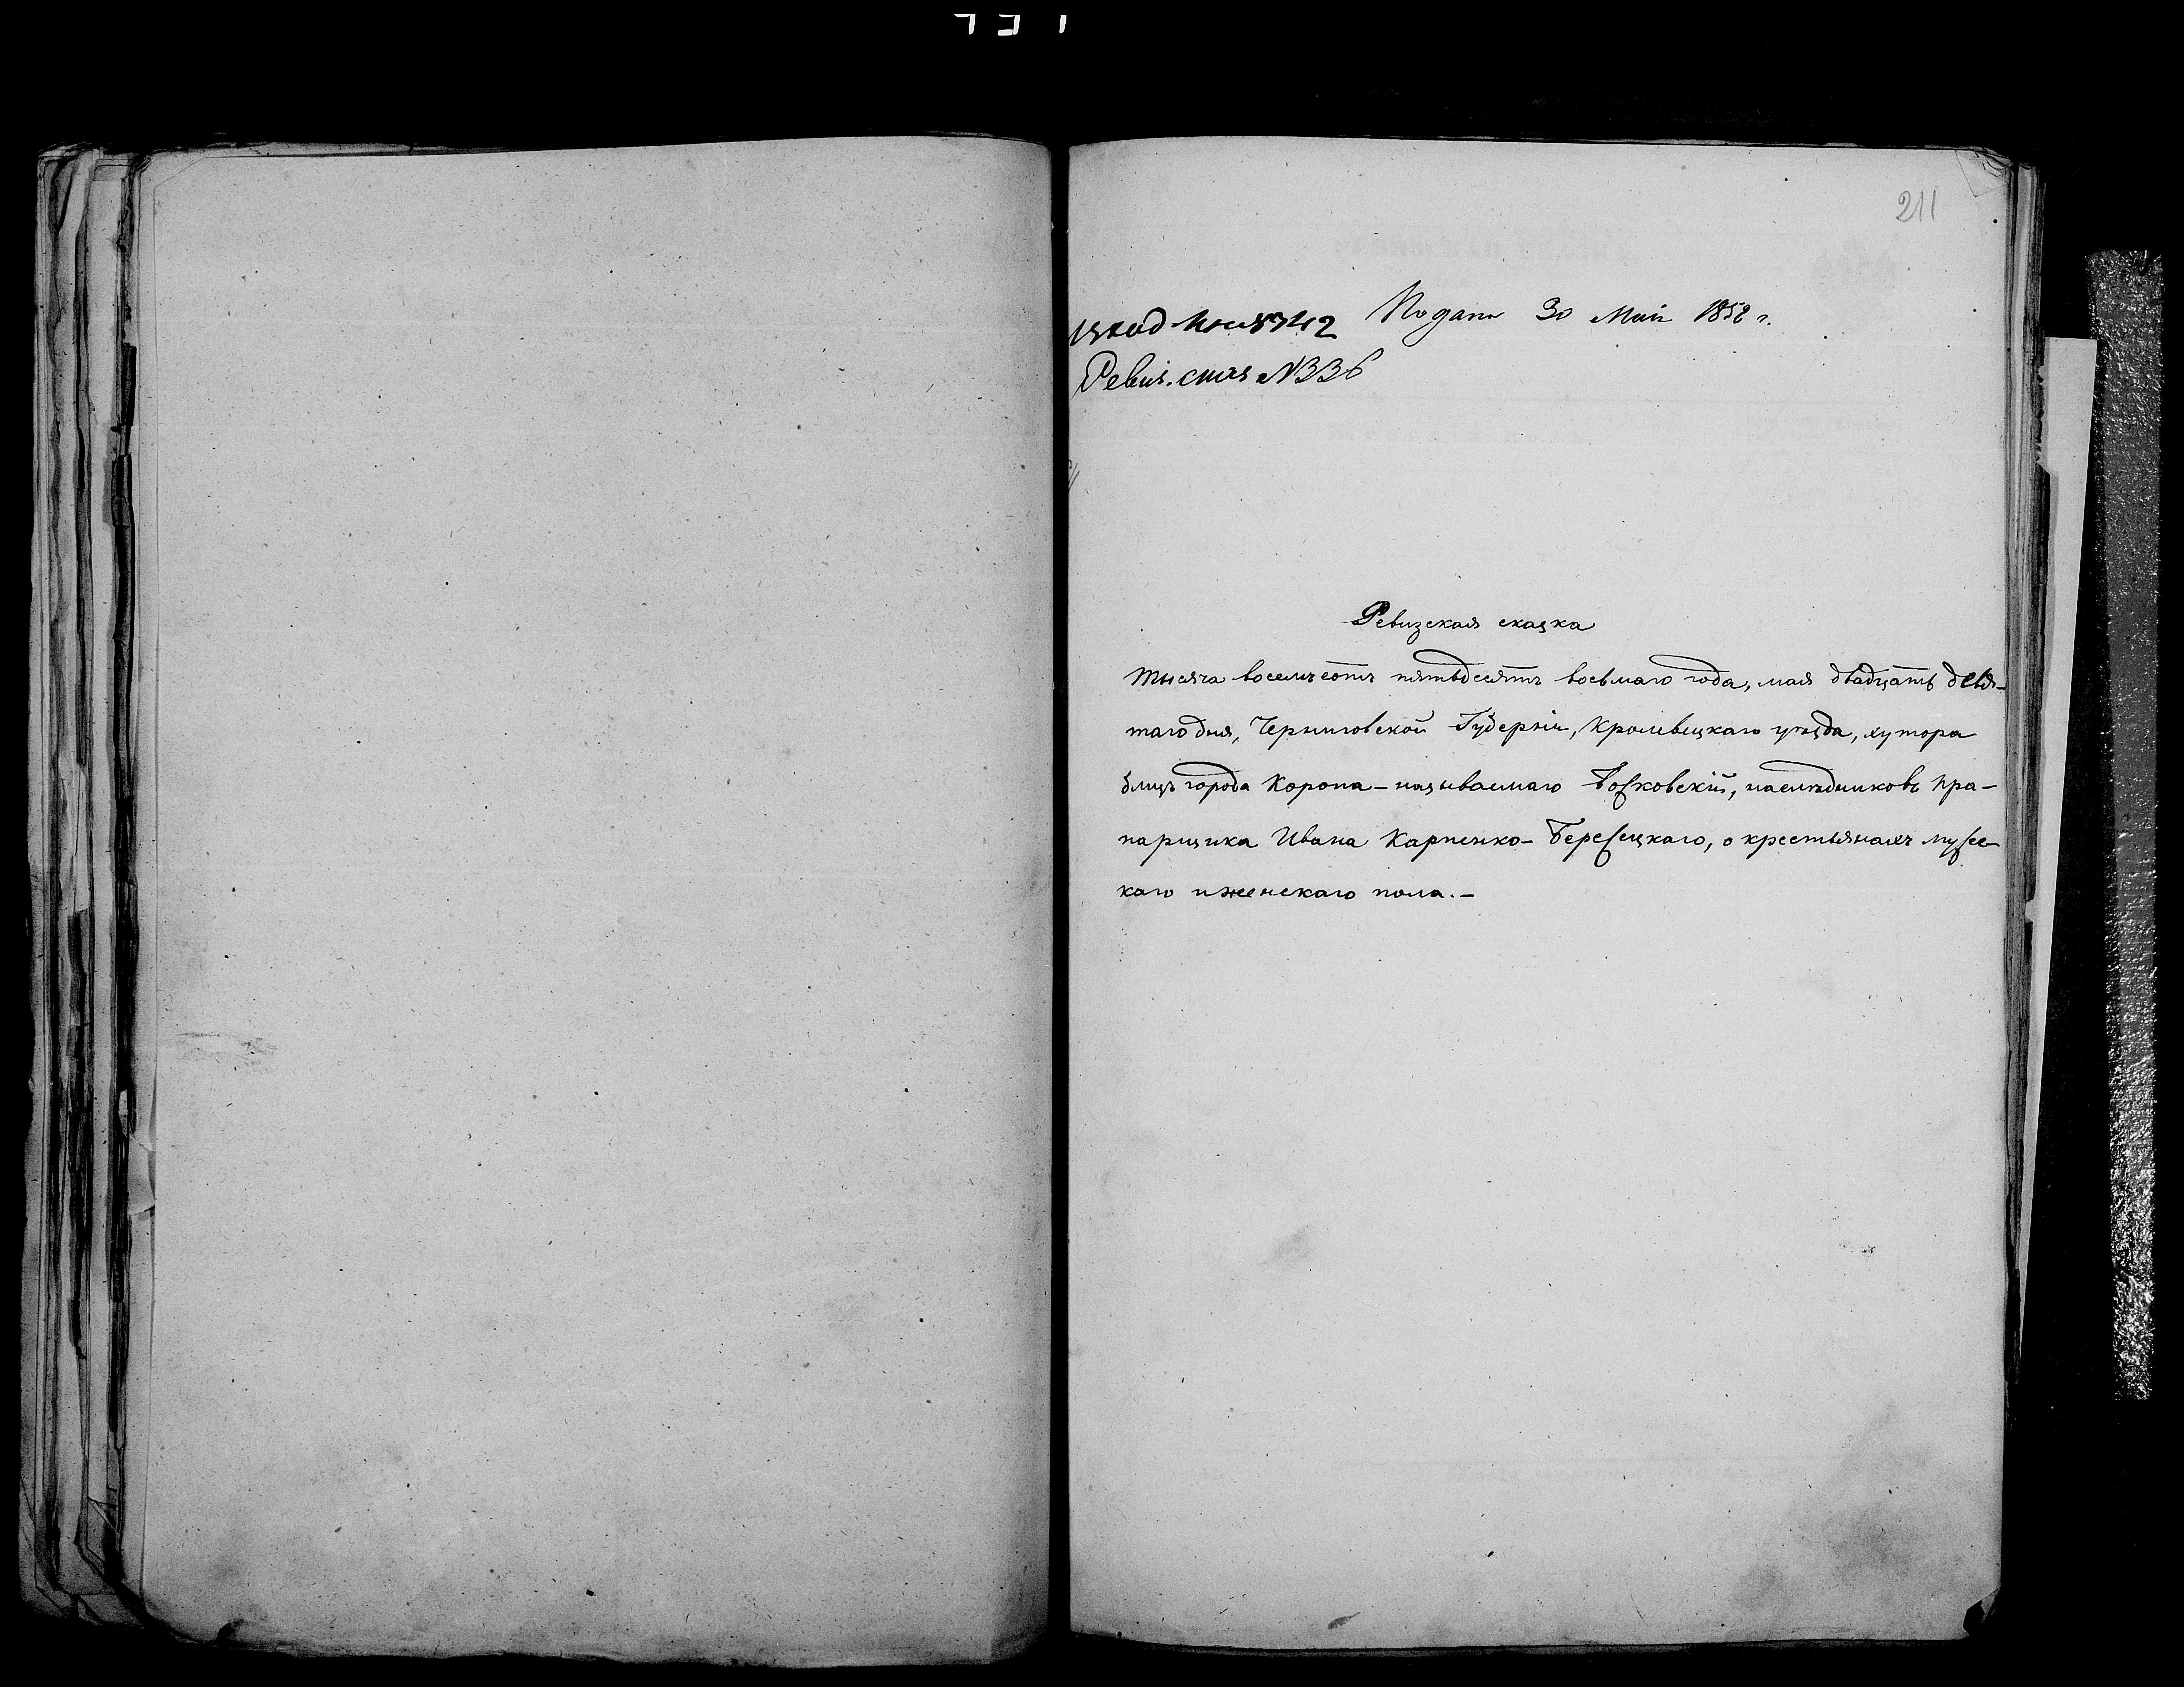 211
Подана 30 Мая 1858 г.
Ревиз. № 336
Ревизская сказка
Тысяча восемьсотъ пятьдесятъ восьмаго года, мая двадцать девя-
таго дня, Черниговской Губерніи, Кролевецкаго уѣзда, хутора
близъ города Коропа - называемаго наслѣдниковъ пра-
порщика Ивана Карпенко- о крестьянахъ мужес-
каго и женскаго пола.-